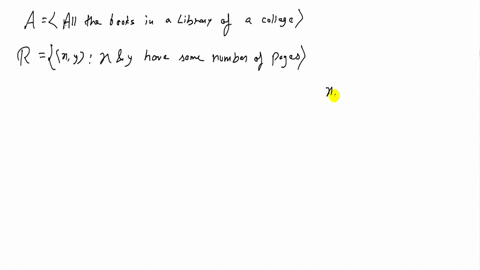 A = { All the books in a Library of a collage }
R = { (x, y) : x & y have same number of pages }
x